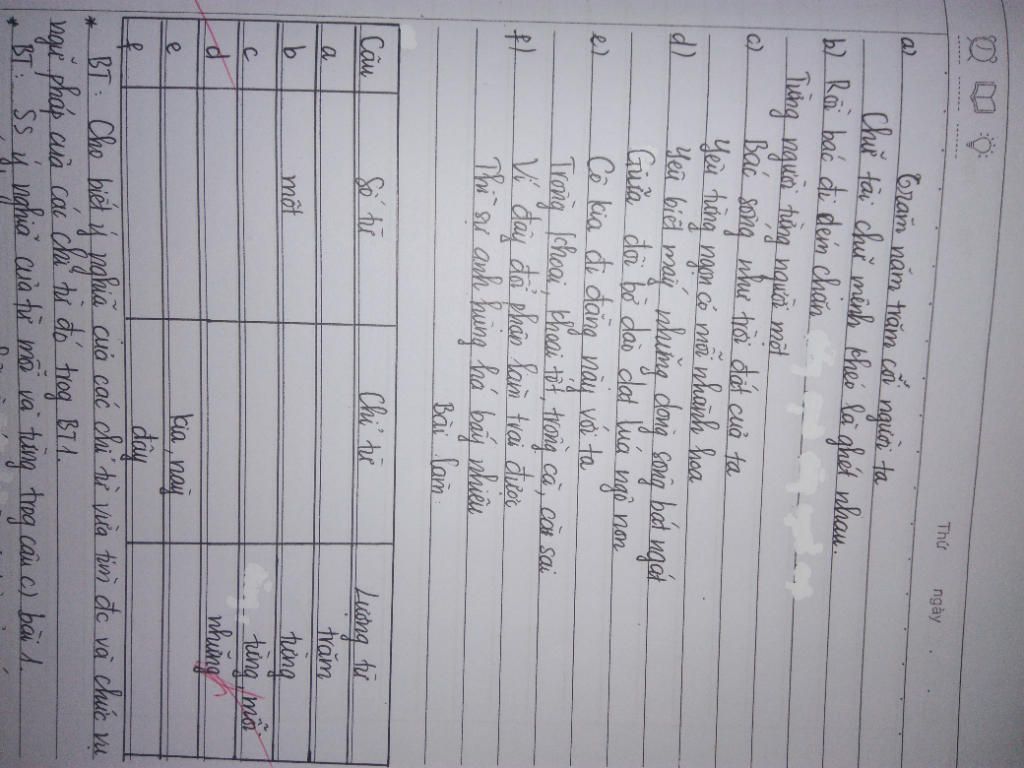 Thứ ngày
a) Trăm năm trăm cõi người ta
Chữ tài chữ mệnh khéo là ghét nhau.
b) Rồi bác đi dém chăn
Từng người từng người một
c) Bác sống như trời đất của ta
Yêu từng ngọn cỏ mỗi nhành hoa
d) Yêu biết mấy những dòng sông bát ngát
Giữa đôi bờ dào dạt lúa ngô non
e) Cô kia đi đằng này với ta
Trồng khoai, khoai tốt, trồng cà, cà sai
f) Ví đây đổi phận làm trai được
Thì sự anh hùng há bấy nhiêu
Bài làm:
Câu Số từ Chỉ từ Lượng từ
a trăm
b một từng
c từng, mỗi
d những
e kia, này
f đây
* BT: Cho biết ý nghĩa của các chỉ từ vừa tìm đc và chức vụ
ngữ pháp của các chỉ từ đó trog BT1.
* BT: Ss ý nghĩa của từ mỗi và từng trog câu c) bài 1.